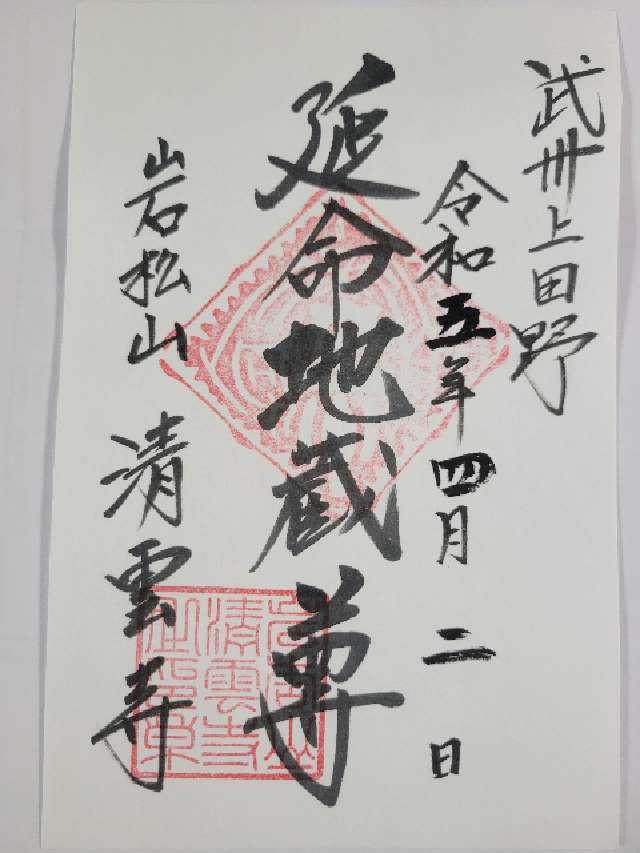 武州上田野
令和五年四月二日
延命地蔵尊
岩松山 清雲寺
清雲寺